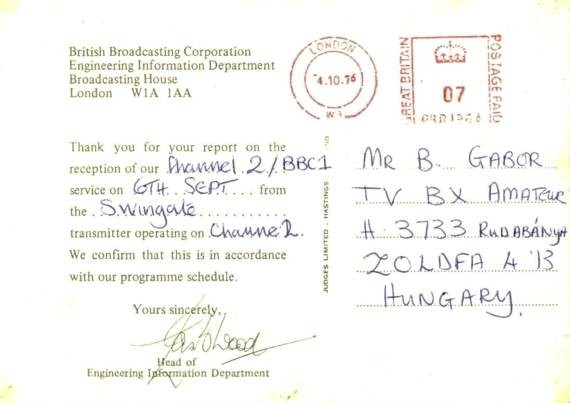 British Broadcasting Corporation
Engineering Information Department
Broadcasting House
London W1A 1AA
LONDON
4.10.76
W1
GREAT BRITAIN
07
POSTAGE PAID
Thank you for your report on the
reception of our Channel 2/BBC1
service on 6TH SEPT from
the Swingate
transmitter operating on Channel 2.
We confirm that this is in accordance
with our programme schedule.
Yours sincerely,
Head of
Engineering Information Department
JUDGES LIMITED. HASTINGS
MR B. GABOR
TV BX AMATEUR
H. 3733 RUDABÁNYA
ZOLDFA 4 '13
HUNGARY.